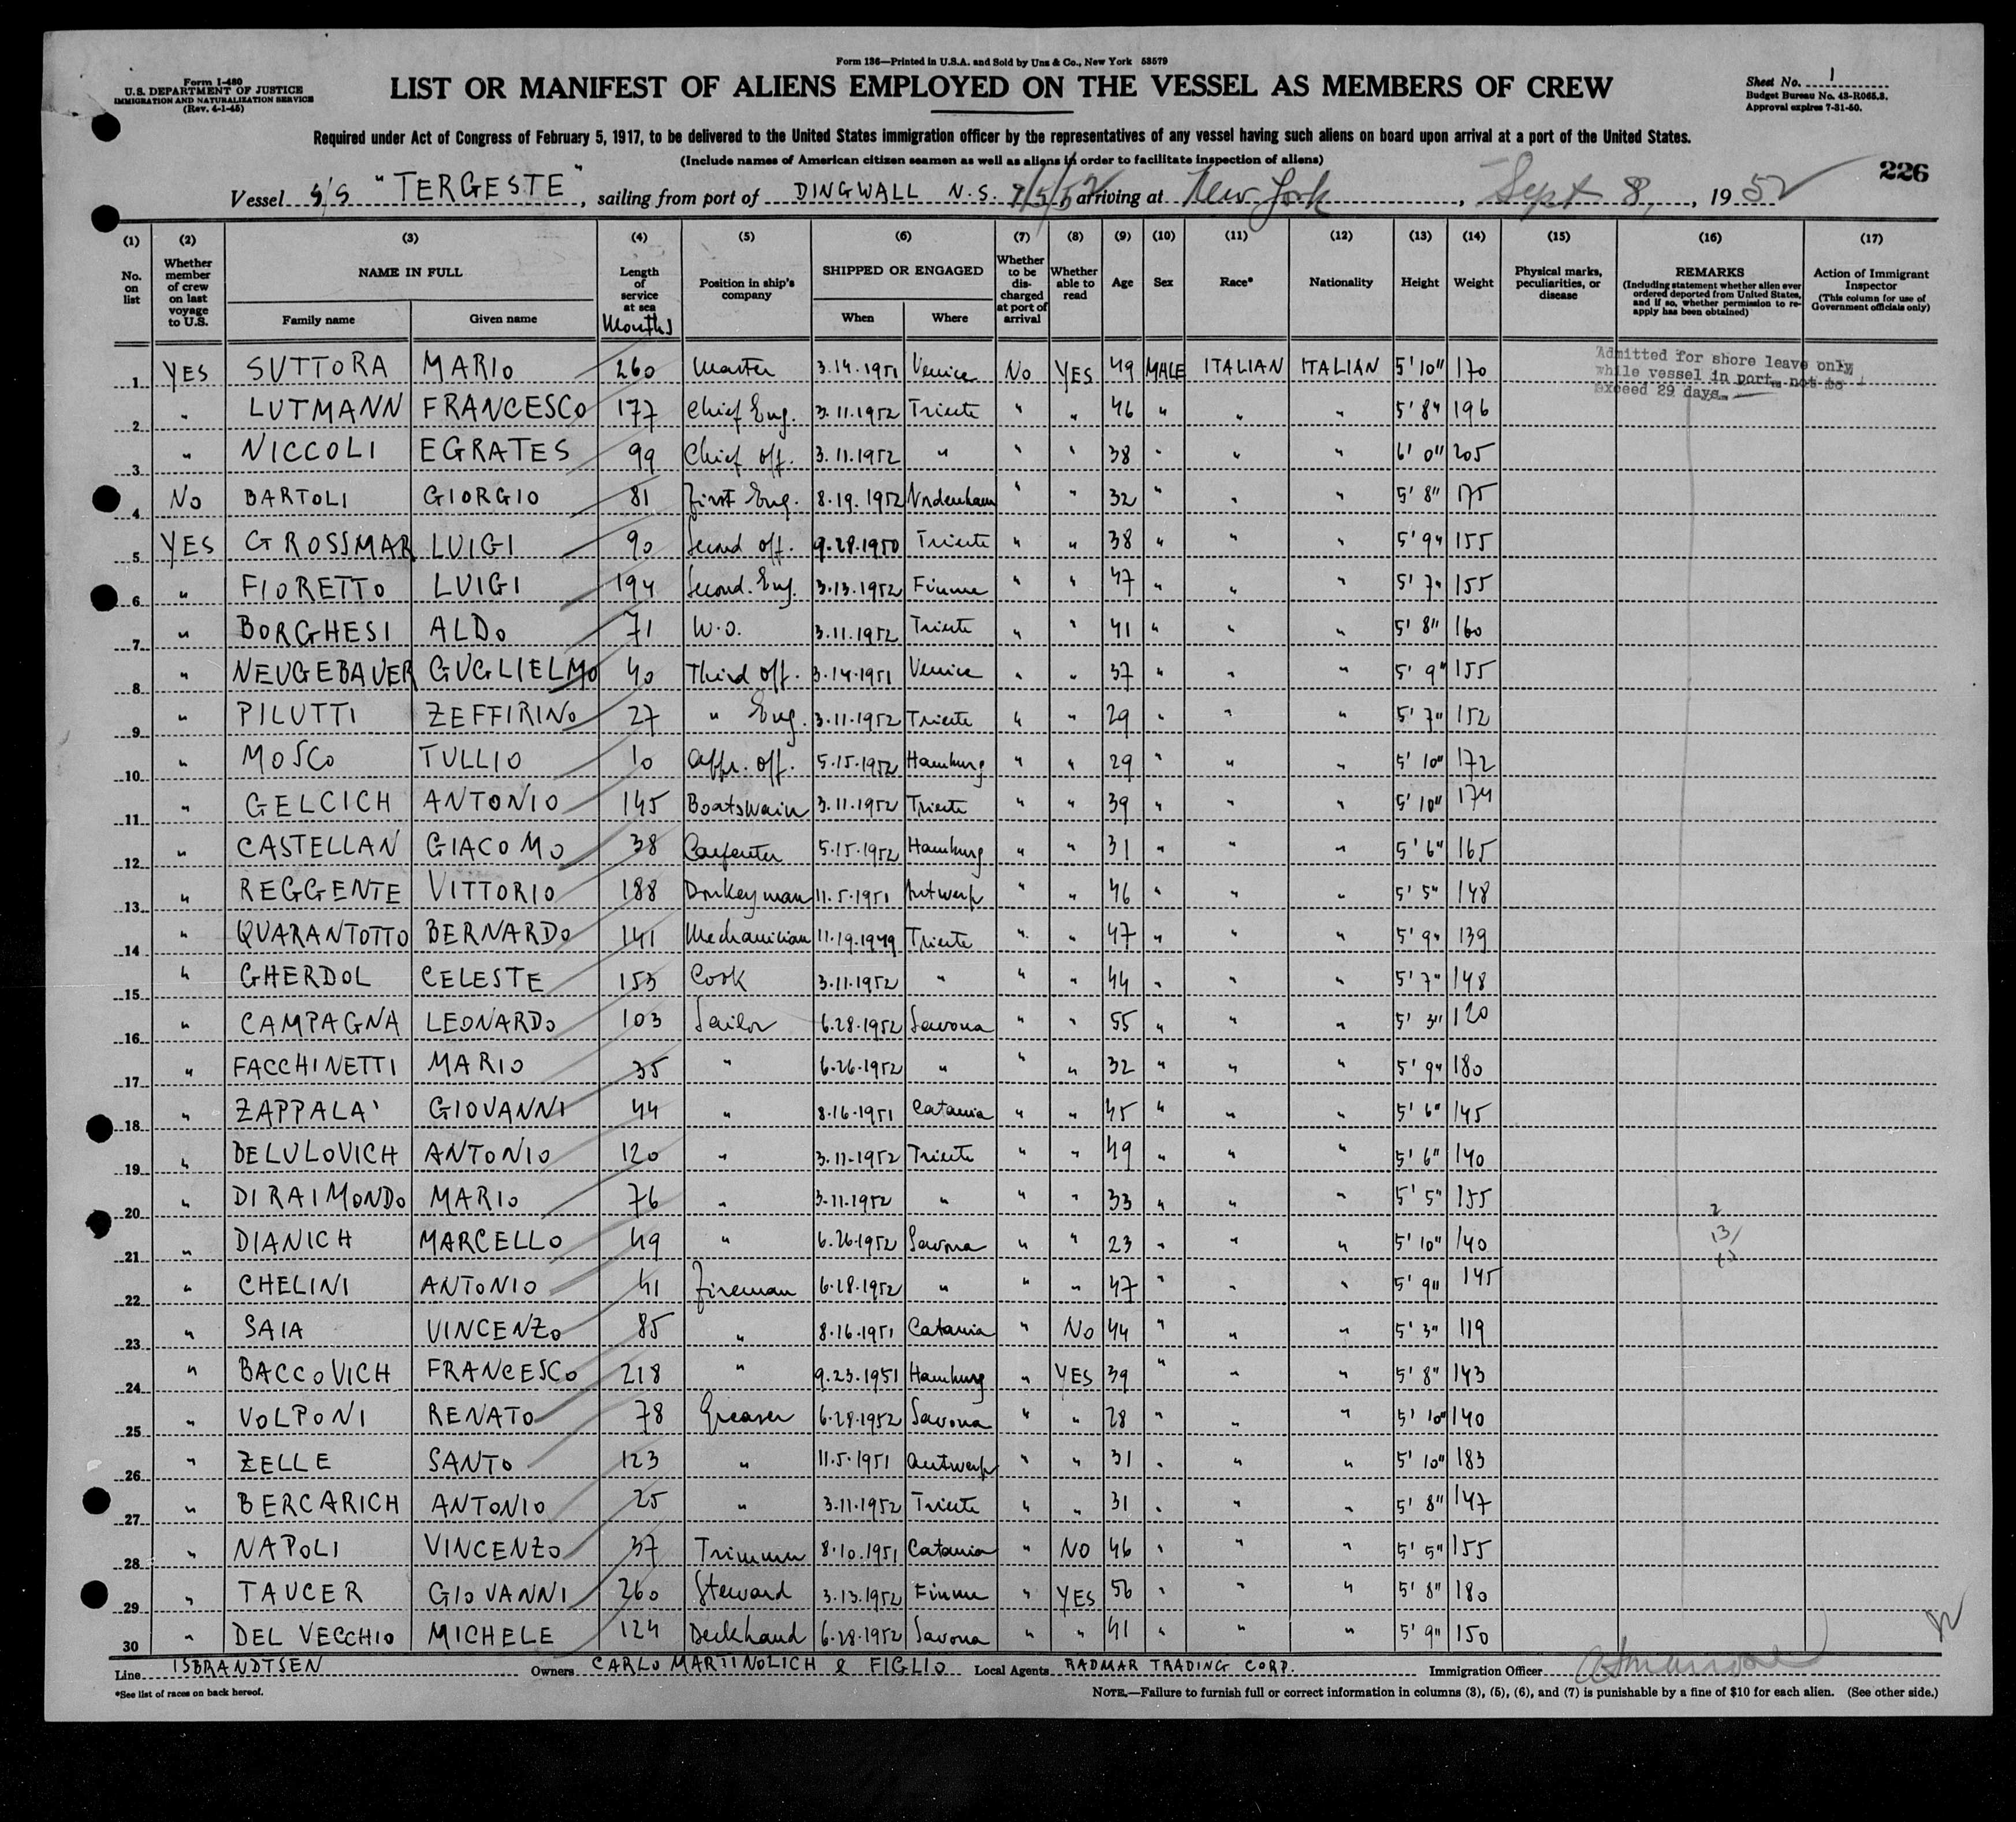 Form 136—Printed in U.S.A. and Sold by Unz & Co., New York 53579
Form I-480
U.S. DEPARTMENT OF JUSTICE
IMMIGRATION AND NATURALIZATION SERVICE
(Rev. 4-1-45)
LIST OR MANIFEST OF ALIENS EMPLOYED ON THE VESSEL AS MEMBERS OF CREW
Sheet No. 1
Budget Bureau No. 43-R065.3.
Approval expires 7-31-50.
Required under Act of Congress of February 5, 1917, to be delivered to the United States immigration officer by the representatives of any vessel having such aliens on board upon arrival at a port of the United States.
(Include names of American citizen seamen as well as aliens in order to facilitate inspection of aliens)
226
Vessel S/S "TERGESTE", sailing from port of DINGWALL N.S. arriving at New York, Sept 8, 1952
(1) (2) (3) (4) (5) (6) (7) (8) (9) (10) (11) (12) (13) (14) (15) (16) (17)
No. on list Whether member of crew on last voyage to U.S. NAME IN FULL Family name Given name Length of service at sea Months Position in ship's company SHIPPED OR ENGAGED When Where Whether to be discharged at port of arrival Whether able to read Age Sex Race* Nationality Height Weight Physical marks, peculiarities, or disease REMARKS (Including statement whether alien ever ordered deported from United States, and if so, whether permission to reapply has been obtained) Action of Immigrant Inspector (This column for use of Government officials only)
1 YES SUTTORA MARIO 260 Master 3.14.1951 Venice No YES 49 MALE ITALIAN ITALIAN 5'10" 170 Admitted for shore leave only while vessel in port not to exceed 29 days
2 " LUTMANN FRANCESCO 177 Chief Eng. 3.11.1952 Trieste " " 46 " " " 5'8" 196
3 " NICCOLI EGRATES 99 Chief off. 3.11.1952 " " " 38 " " " 6'0" 205
4 No BARTOLI GIORGIO 81 First Eng. 8.19.1952 Nordenham " " 32 " " " 5'8" 175
5 YES GROSSMAR LUIGI 90 Second off. 9.28.1950 Trieste " " 38 " " " 5'9" 155
6 " FIORETTO LUIGI 194 Second. Eng. 3.13.1952 Fiume " " 47 " " " 5'7" 155
7 " BORGHESI ALDO 71 W.O. 3.11.1952 Trieste " " 41 " " " 5'8" 160
8 " NEUGEBAUER GUGLIELMO 40 Third off. 3.14.1951 Venice " " 37 " " " 5'9" 155
9 " PILUTTI ZEFFIRINO 27 " Eng. 3.11.1952 Trieste " " 29 " " " 5'7" 152
10 " MOSCO TULLIO 10 Appr. off. 5.15.1952 Hamburg " " 29 " " " 5'10" 172
11 " GELCICH ANTONIO 145 Boatswain 3.11.1952 Trieste " " 39 " " " 5'10" 174
12 " CASTELLAN GIACOMO 38 Carpenter 5.15.1952 Hamburg " " 31 " " " 5'6" 165
13 " REGGENTE VITTORIO 188 Donkeyman 11.5.1951 Antwerp " " 46 " " " 5'5" 148
14 " QUARANTOTTO BERNARDO 141 Mechanician 11.19.1949 Trieste " " 47 " " " 5'9" 139
15 " GHERDOL CELESTE 153 Cook 3.11.1952 " " " 44 " " " 5'7" 148
16 " CAMPAGNA LEONARDO 103 Sailor 6.28.1952 Savona " " 55 " " " 5'3" 120
17 " FACCHINETTI MARIO 35 " 6.26.1952 " " " 32 " " " 5'9" 180
18 " ZAPPALA' GIOVANNI 44 " 8.16.1951 Catania " " 45 " " " 5'6" 145
19 " BELULOVICH ANTONIO 120 " 3.11.1952 Trieste " " 49 " " " 5'6" 140
20 " DI RAIMONDO MARIO 76 " 3.11.1952 " " " 33 " " " 5'5" 155
21 " DIANICH MARCELLO 49 " 6.26.1952 Savona " " 23 " " " 5'10" 140
22 " CHELINI ANTONIO 41 Fireman 6.28.1952 " " " 47 " " " 5'9" 145
23 " SAIA VINCENZO 85 " 8.16.1951 Catania " No 44 " " " 5'3" 119
24 " BACCOVICH FRANCESCO 218 " 9.23.1951 Hamburg " YES 39 " " " 5'8" 143
25 " VOLPONI RENATO 78 Greaser 6.28.1952 Savona " " 28 " " " 5'10" 140
26 " ZELLE SANTO 123 " 11.5.1951 Antwerp " " 31 " " " 5'10" 183
27 " BERCARICH ANTONIO 25 " 3.11.1952 Trieste " " 31 " " " 5'8" 147
28 " NAPOLI VINCENZO 37 Trimmer 8.10.1951 Catania " NO 46 " " " 5'5" 155
29 " TAUCER GIOVANNI 260 Steward 3.13.1952 Fiume " YES 56 " " " 5'8" 180
30 " DEL VECCHIO MICHELE 124 Deckhand 6.28.1952 Savona " " 41 " " " 5'9" 150
Line ISBRANDTSEN Owners CARLO MARTINOLICH & FIGLIO Local Agents RADMAR TRADING CORP. Immigration Officer
*See list of races on back hereof.
NOTE.—Failure to furnish full or correct information in columns (3), (5), (6), and (7) is punishable by a fine of $10 for each alien. (See other side.)